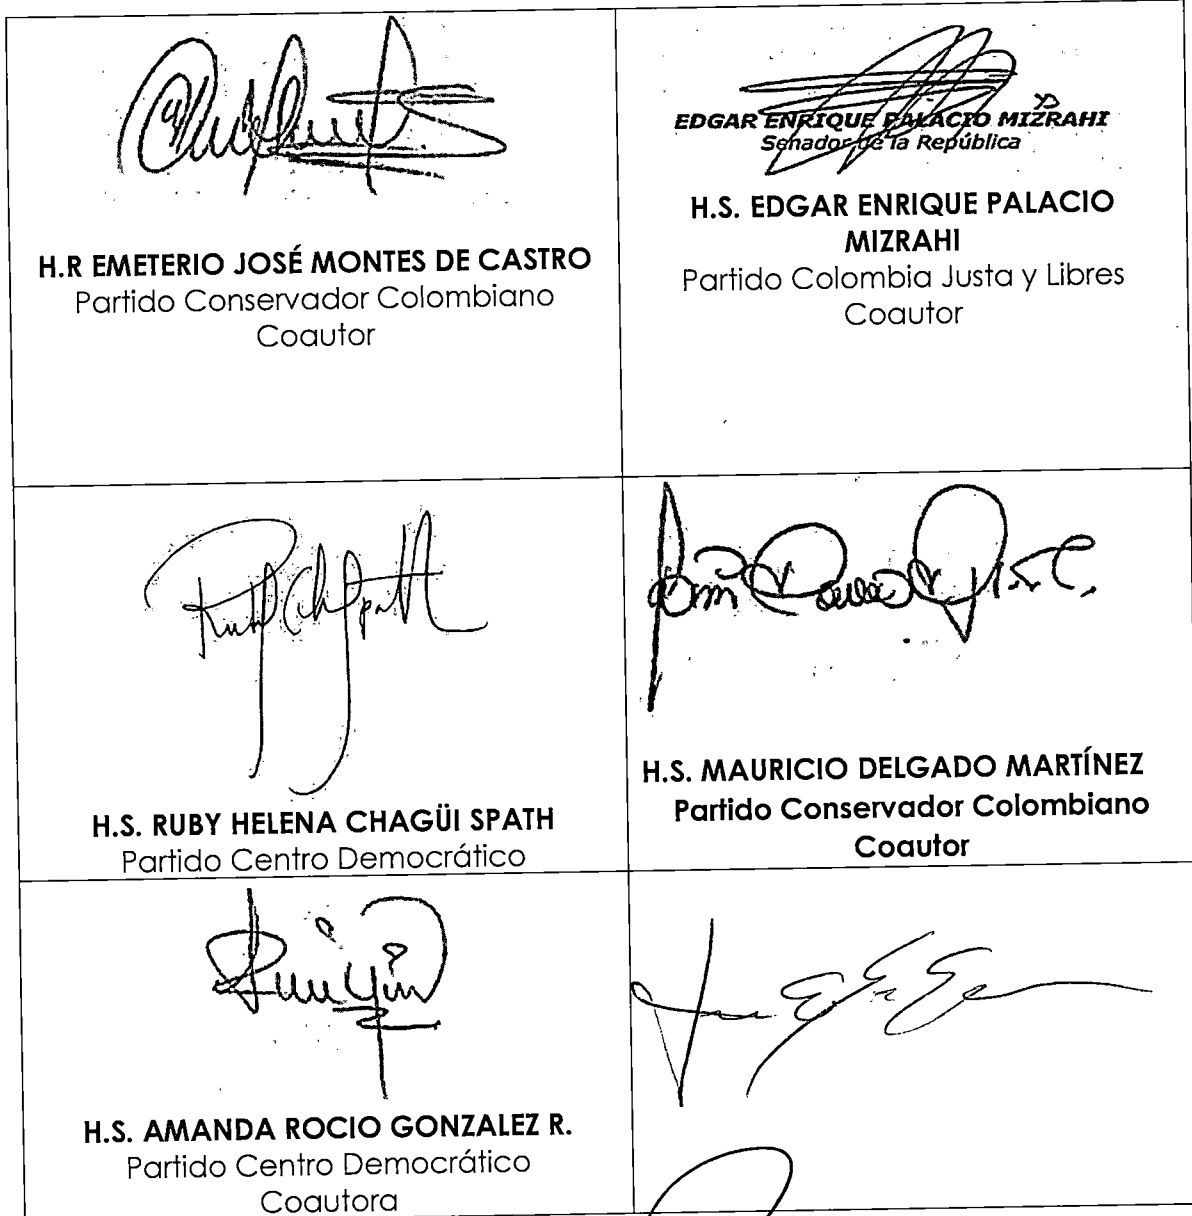 H.R EMETERIO JOSÉ MONTES DE CASTRO
Partido Conservador Colombiano
Coautor
EDGAR ENRIQUE PALACIO MIZRAHI
Senador de la República
H.S. EDGAR ENRIQUE PALACIO
MIZRAHI
Partido Colombia Justa y Libres
Coautor
H.S. RUBY HELENA CHAGÜI SPATH
Partido Centro Democrático
H.S. MAURICIO DELGADO MARTÍNEZ
Partido Conservador Colombiano
Coautor
H.S. AMANDA ROCIO GONZALEZ R.
Partido Centro Democrático
Coautora